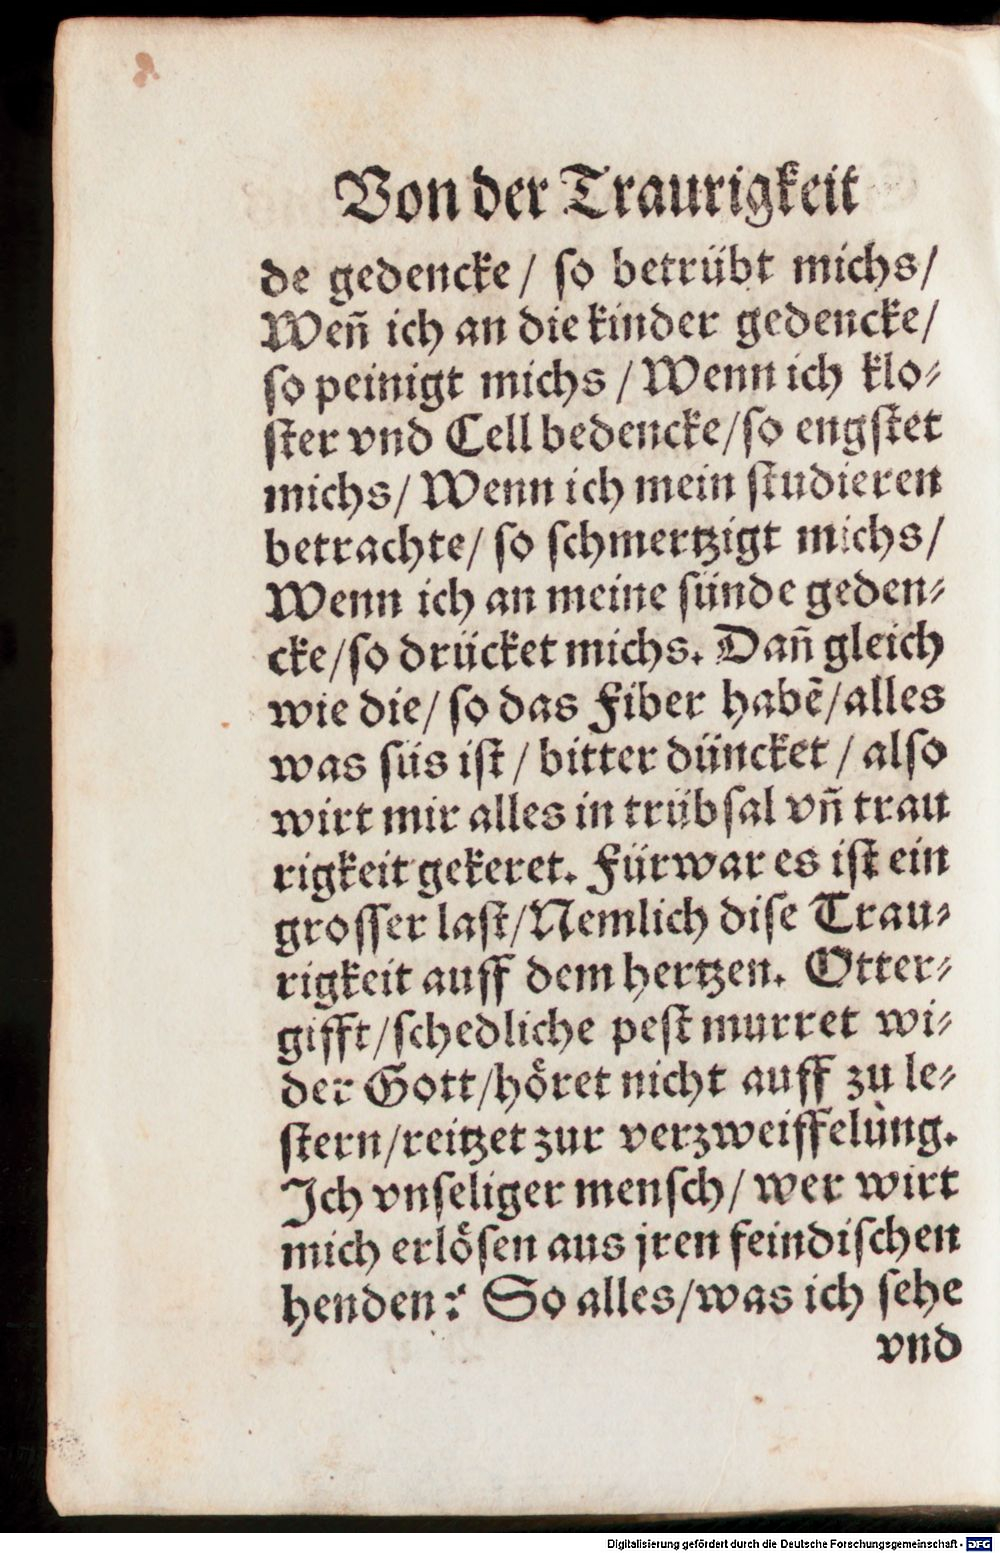 Von der Traurigkeit
de gedencke/ so betrübt michs/
Weñ ich an die kinder gedencke/
so peinigt michs / Wenn ich klo⸗
ster vnd Cell bedencke/so engstet
michs/ Wenn ich mein studieren
betrachte/ so schmertzigt michs/
Wenn ich an meine sünde geden⸗
cke/so drücket michs. Dañ gleich
wie die/ so das Fiber habẽ/alles
was süs ist / bitter düncket / also
wirt mir alles in trübsal vñ trau
rigkeit gekeret. Fürwar es ist ein
grosser last/Nemlich dise Trau⸗
rigkeit auff dem hertzen. Otter⸗
gifft/schedliche pest murret wi⸗
der Gott/höret nicht auff zu le⸗
stern/reitzet zur verzweiffelung.
Ich vnseliger mensch/ wer wirt
mich erlösen aus jren feindischen
henden? So alles/was ich sehe
vnd
Digitalisierung gefördert durch die Deutsche Forschungsgemeinschaft - DFG